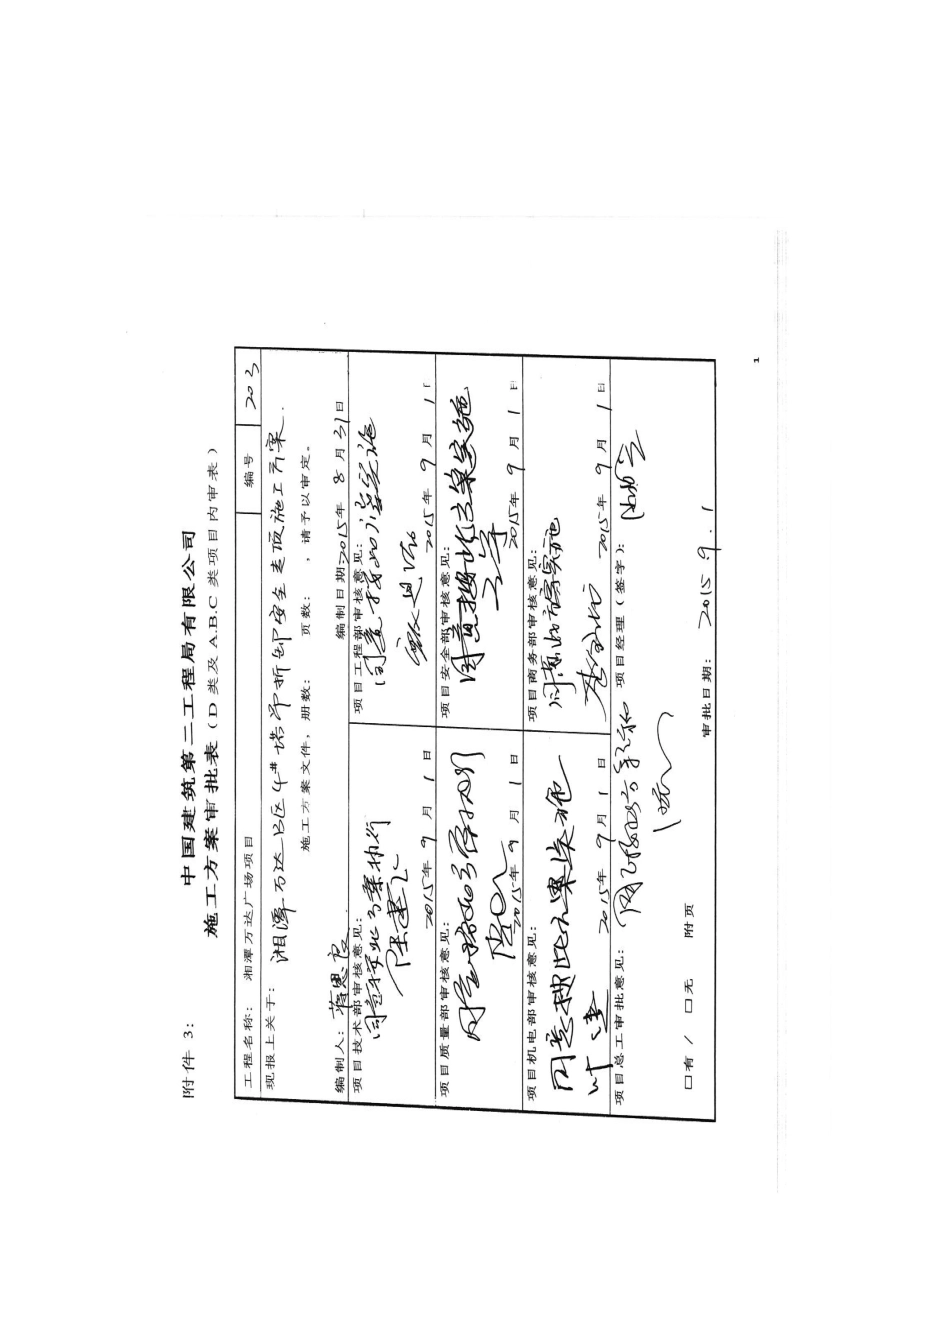 附件 3:
中国建筑第二工程局有限公司
施工方案审批表（D 类及 A.B.C 类项目内审表）
工程名称: 湘潭万达广场项目 编号 203
现报上关于: 湘潭万达B区4#塔吊拆卸安全专项施工方案.
施工方案文件，册数: 页数: ，请予以审定。
编制人: 编制日期:2015年 8 月 31日
项目技术部审核意见:
同意按此方案执行
2015年 9 月 1 日
项目工程部审核意见:
同意按此方案实施
2015年 9 月 1
项目质量部审核意见:
同意按此方案执行
2015年 9 月 1 日
项目安全部审核意见:
同意按此方案实施
2015年 9 月 1 日
项目机电部审核意见:
同意按此方案实施
2015年 9 月 1 日
项目商务部审核意见:
同意此方案实施
2015年 9 月 1 日
项目总工审批意见:
项目经理（签字）:
口有 / 口无 附页
审批日期: 2015.9.1
1